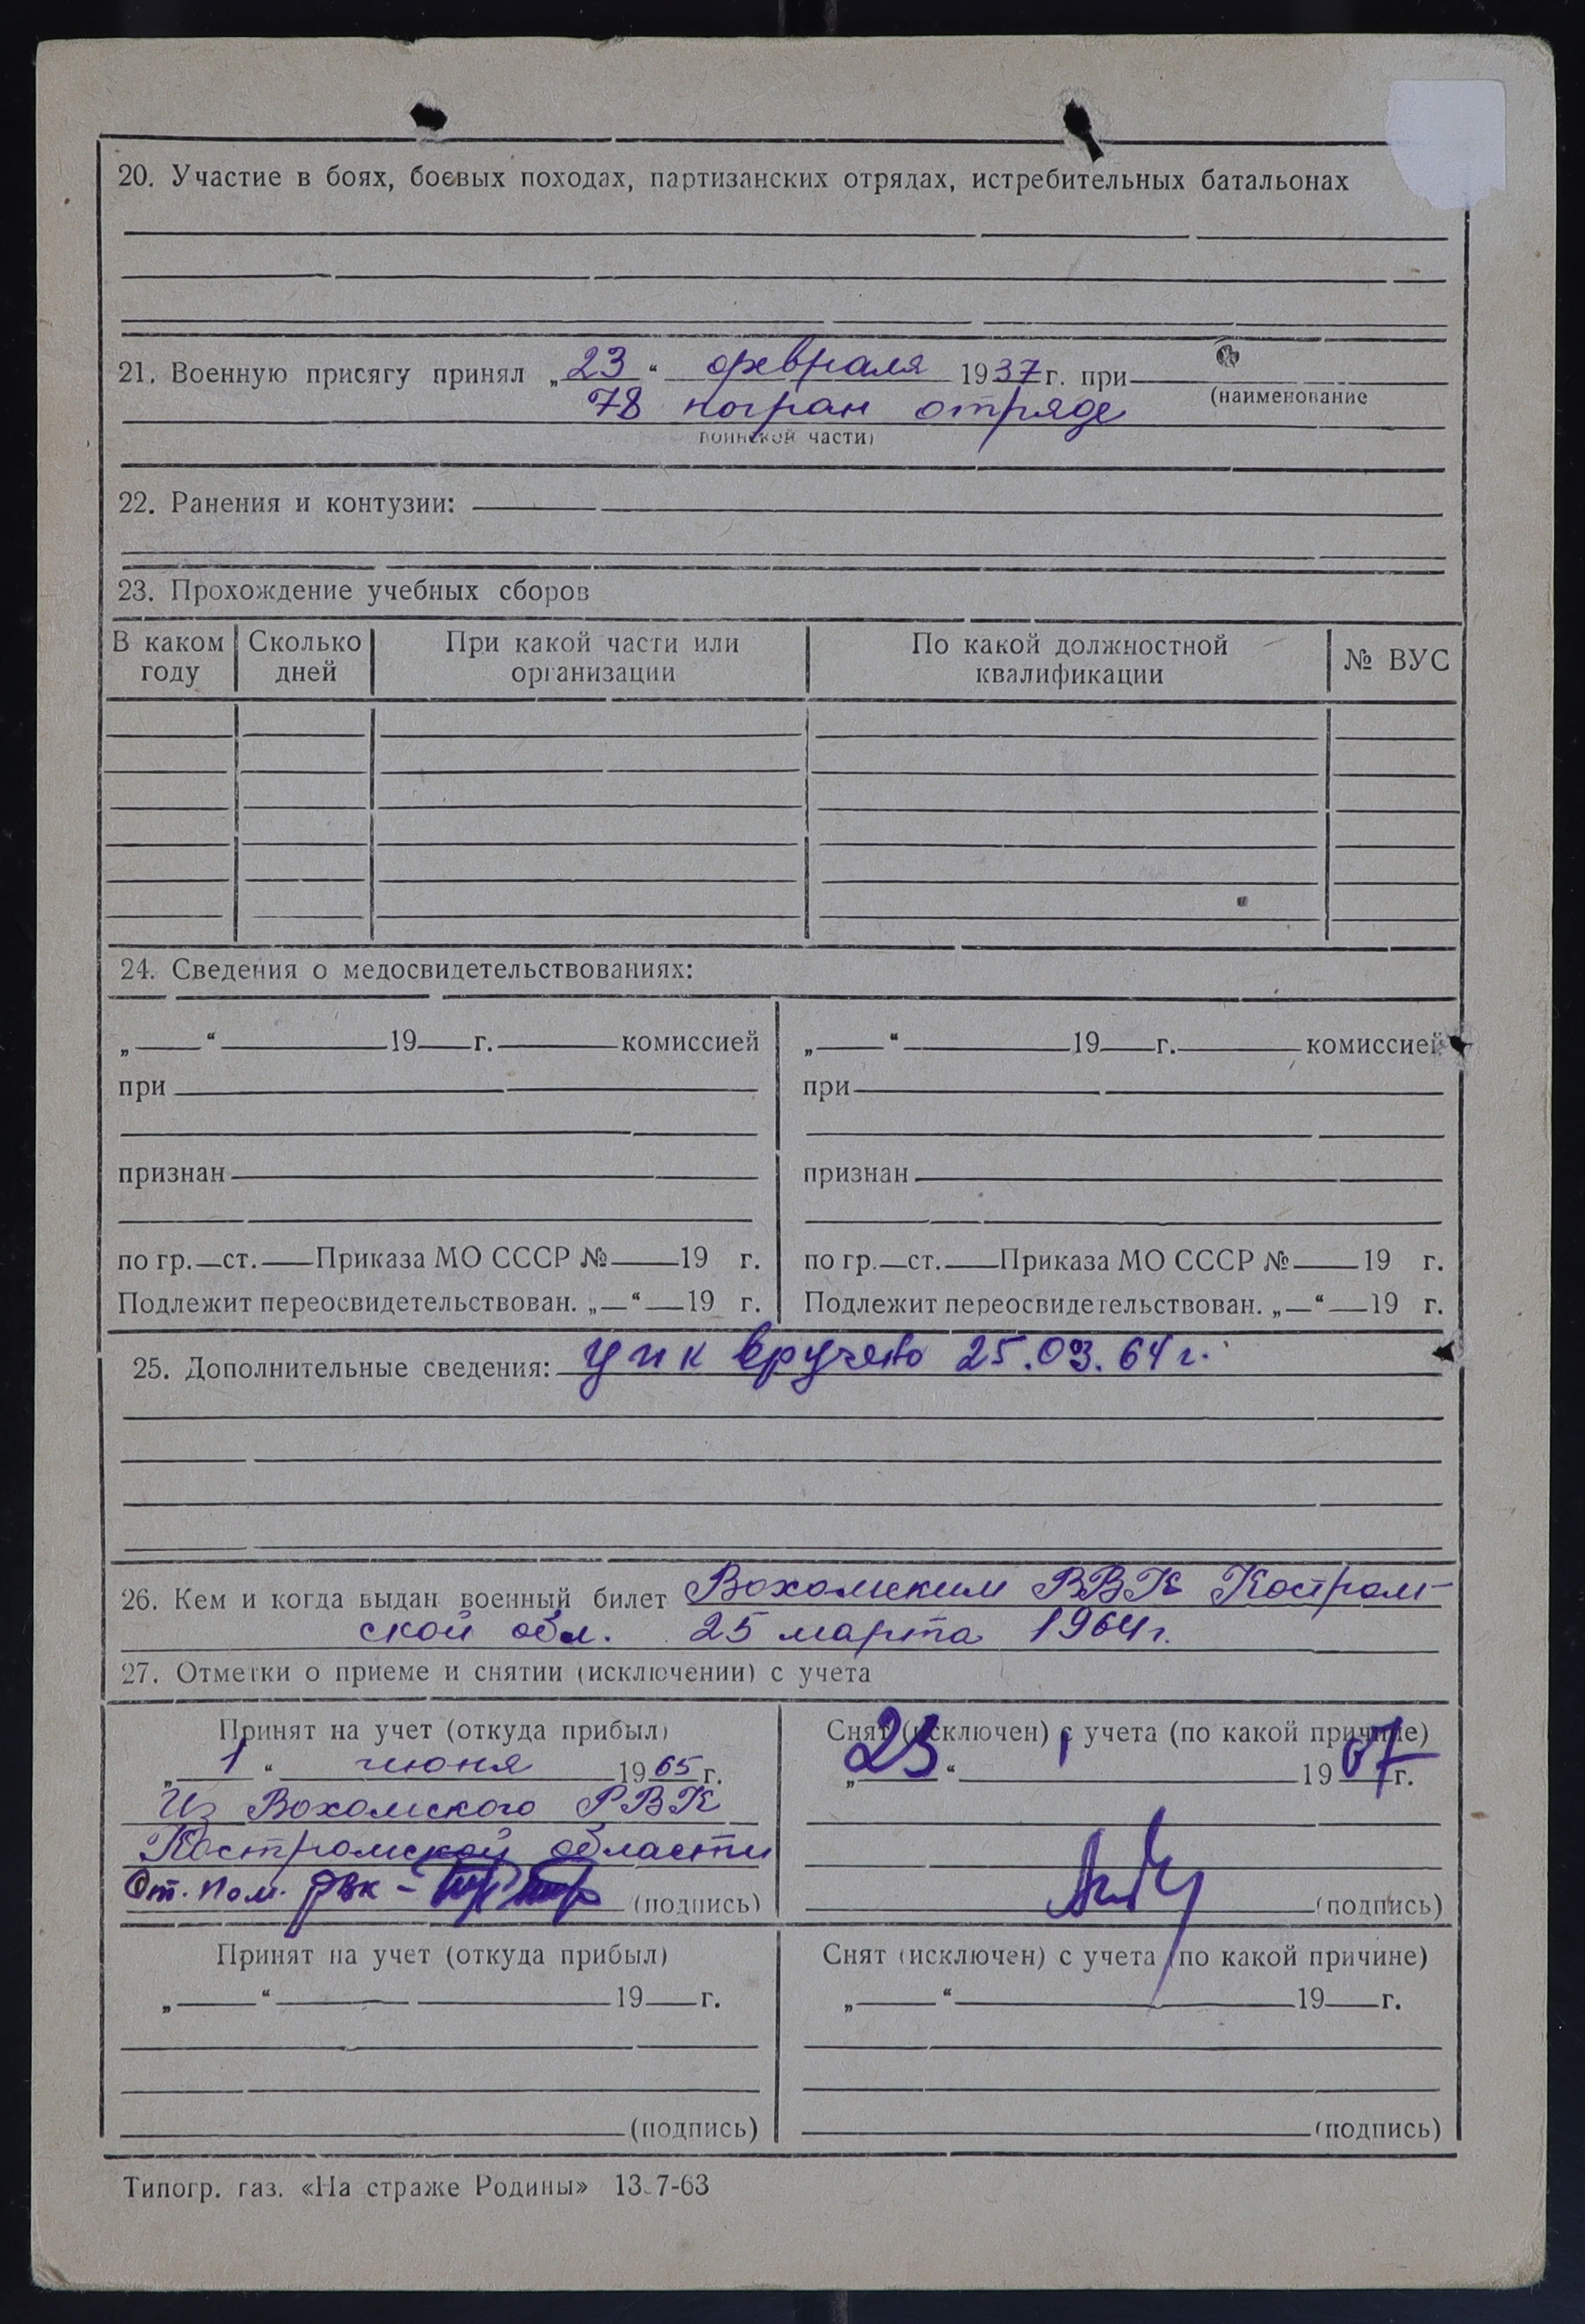 20. Участие в боях, боевых походах, партизанских отрядах, истребительных батальонах
21. Военную присягу принял „23“ февраля 1937 г. при
(наименование
78 погран отряде
воинской части)
22. Ранения и контузии:
23. Прохождение учебных сборов
В каком году Сколько дней При какой части или организации По какой должностной квалификации № ВУС
24. Сведения о медосвидетельствованиях:
„ “ 19 г. комиссией „ “ 19 г. комиссией
при при
признан признан
по гр. ст. Приказа МО СССР № 19 г. по гр. ст. Приказа МО СССР № 19 г.
Подлежит переосвидетельствован. „ “ 19 г. Подлежит переосвидетельствован. „ “ 19 г.
25. Дополнительные сведения: упк вручено 25.03.64 г.
26. Кем и когда выдан военный билет Вохомским РВК Костром-
ской обл. 25 марта 1964 г.
27. Отметки о приеме и снятии (исключении) с учета
Принят на учет (откуда прибыл) Снят (исключен) с учета (по какой причине)
„1“ июня 1965 г. „23“ 1 1967 г.
Из Вохомского РВК
Костромской области
От. пом. РВК - (подпись) (подпись)
Принят на учет (откуда прибыл) Снят (исключен) с учета (по какой причине)
„ “ 19 г. „ “ 19 г.
(подпись) (подпись)
Типогр. газ. «На страже Родины» 13-7-63